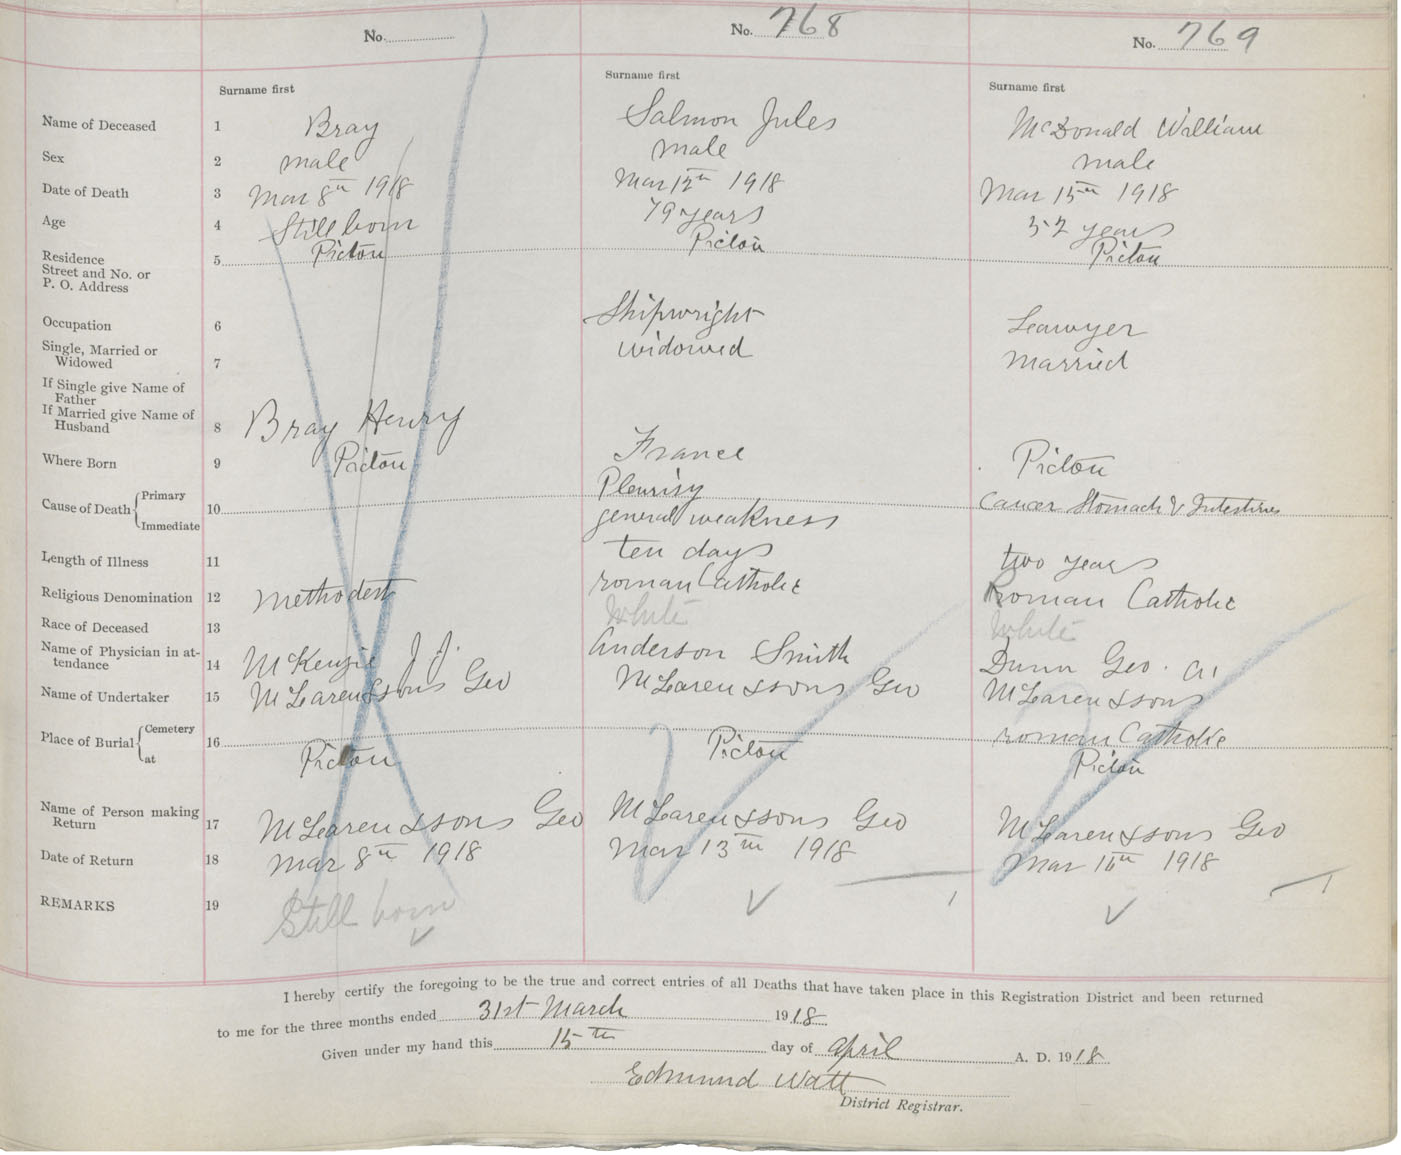 No. 768 769
No. 768
No. 769
Surname first Surname first Surname first
Name of Deceased 1 Bray Salmon Jules McDonald William
Sex 2 male male male
Date of Death 3 Mar 8th 1918 Mar 12th 1918 Mar 15th 1918
Age 4 Still born 79 years 52 years
Residence 5 Picton Picton Picton
Street and No. or
P. O. Address
Occupation 6 Shipwright Leawyer
Single, Married or
Widowed 7 widowed married
If Single give Name of
Father
If Married give Name of
Husband 8 Bray Henry
Where Born 9 Picton France Picton
Cause of Death Primary 10 Pleurisy Cancer Stomach & Intestines
Immediate general weakness
Length of Illness 11 ten days two years
Religious Denomination 12 Methodest roman Catholic Roman Catholic
Race of Deceased 13 White White
Name of Physician in at-
tendance 14 McKenzie J J. Anderson Smith Dunn Geo. A
Name of Undertaker 15 McLaren & sons Geo McLaren & sons Geo McLaren & sons
Place of Burial Cemetery 16 roman Catholic
at Picton Picton Picton
Name of Person making
Return 17 McLaren & sons Geo McLaren & sons Geo McLaren & sons Geo
Date of Return 18 Mar 8th 1918 Mar 13th 1918 Mar 16th 1918
REMARKS 19 Still born
I hereby certify the foregoing to be the true and correct entries of all Deaths that have taken place in this Registration District and been returned
to me for the three months ended 31st March 1918
Given under my hand this 15th day of April A. D. 1918
Edmund Watt
District Registrar.